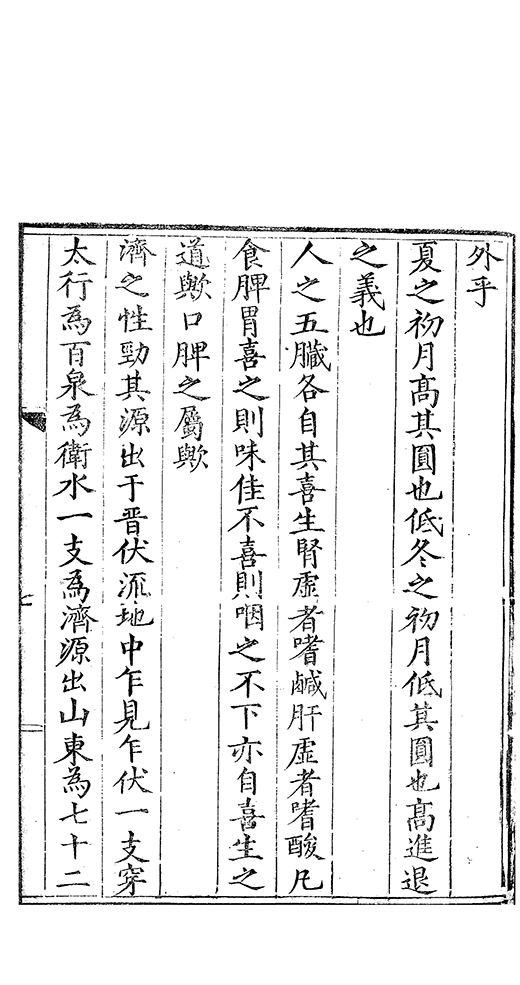 外乎
夏之初月髙其圓也低冬之初月低其圓也髙進退
之義也
人之五臟各自其喜生腎虛者嗜鹹肝虛者嗜酸凡
食脾胃喜之則味佳不喜則咽之不下亦自喜生之
道歟口脾之屬歟
濟之性勁其源出于晋伏流地中乍見乍伏一支穿
太行為百泉為衛水一支為濟源出山東為七十二